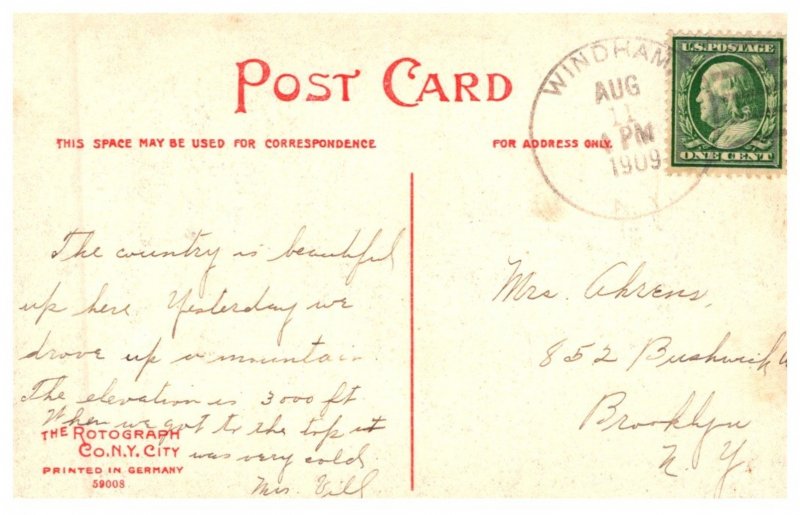 POST CARD
THIS SPACE MAY BE USED FOR CORRESPONDENCE
FOR ADDRESS ONLY.
WINDHAM
AUG
11
4 PM
1909
N.Y.
U.S. POSTAGE
ONE CENT
The country is beautiful
up here. Yesterday we
drove up a mountain.
The elevation is 3000 ft.
When we got to the top it
was very cold.
Mrs.
Mrs. Ahrens,
852 Bushwick
Brooklyn
N. Y.
THE ROTOGRAPH
CO. N.Y. CITY
PRINTED IN GERMANY
59008